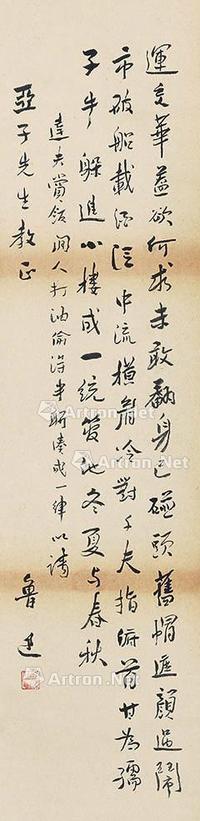 運交華蓋欲何求未敢翻身已碰頭舊帽遮顏過鬧
市破船載酒泛中流橫眉冷對千夫指俯首甘為孺
子牛躲進小樓成一統管他冬夏与春秋
達夫賞飯閑人打油偷得半聯湊成一律以請
亞子先生教正
魯迅
Artron.Net
Artron.Net
Artron.Net
Artron.Net